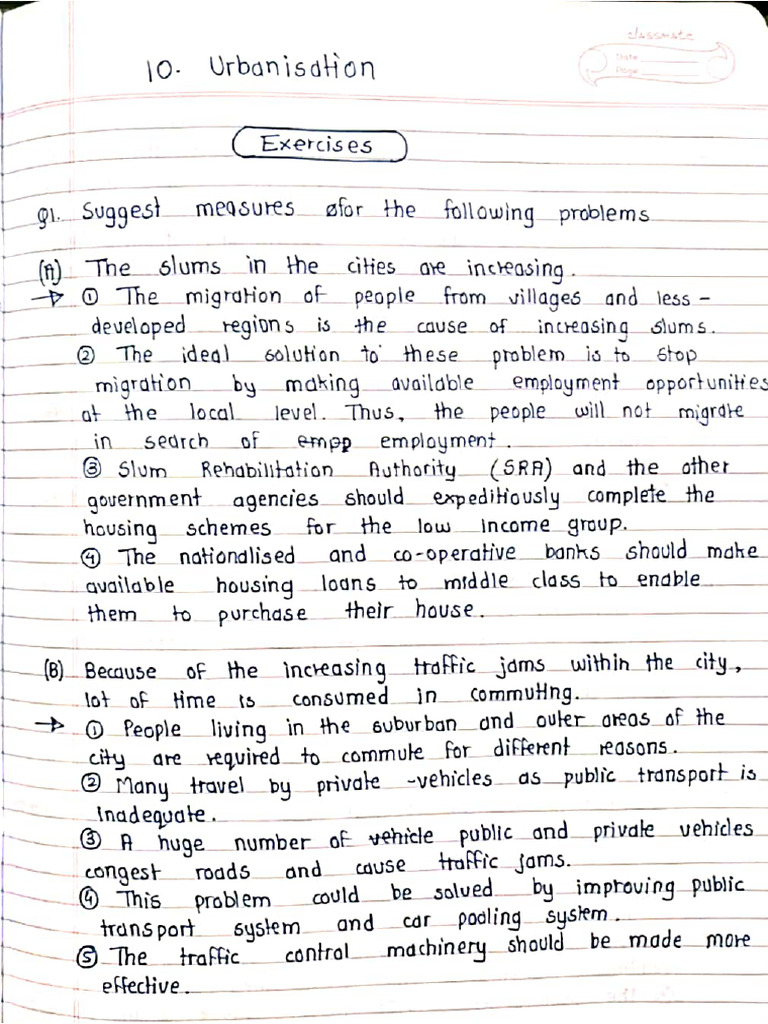 classmate
Date
Page
10. Urbanisation
Exercises
Q1. Suggest measures for the following problems
(A) The slums in the cities are increasing.
→ ① The migration of people from villages and less-
developed regions is the cause of increasing slums.
② The ideal solution to these problem is to stop
migration by making available employment opportunities
at the local level. Thus, the people will not migrate
in search of empp employment.
③ Slum Rehabilitation Authority (SRA) and the other
government agencies should expeditiously complete the
housing schemes for the low income group.
④ The nationalised and co-operative banks should make
available housing loans to middle class to enable
them to purchase their house.
(B) Because of the increasing traffic jams within the city,
lot of time is consumed in commuting.
→ ① People living in the suburban and outer areas of the
city are required to commute for different reasons.
② Many travel by private -vehicles as public transport is
inadequate.
③ A huge number of vehicle public and private vehicles
congest roads and cause traffic jams.
④ This problem could be solved by improving public
transport system and car pooling system.
⑤ The traffic control machinery should be made more
effective.